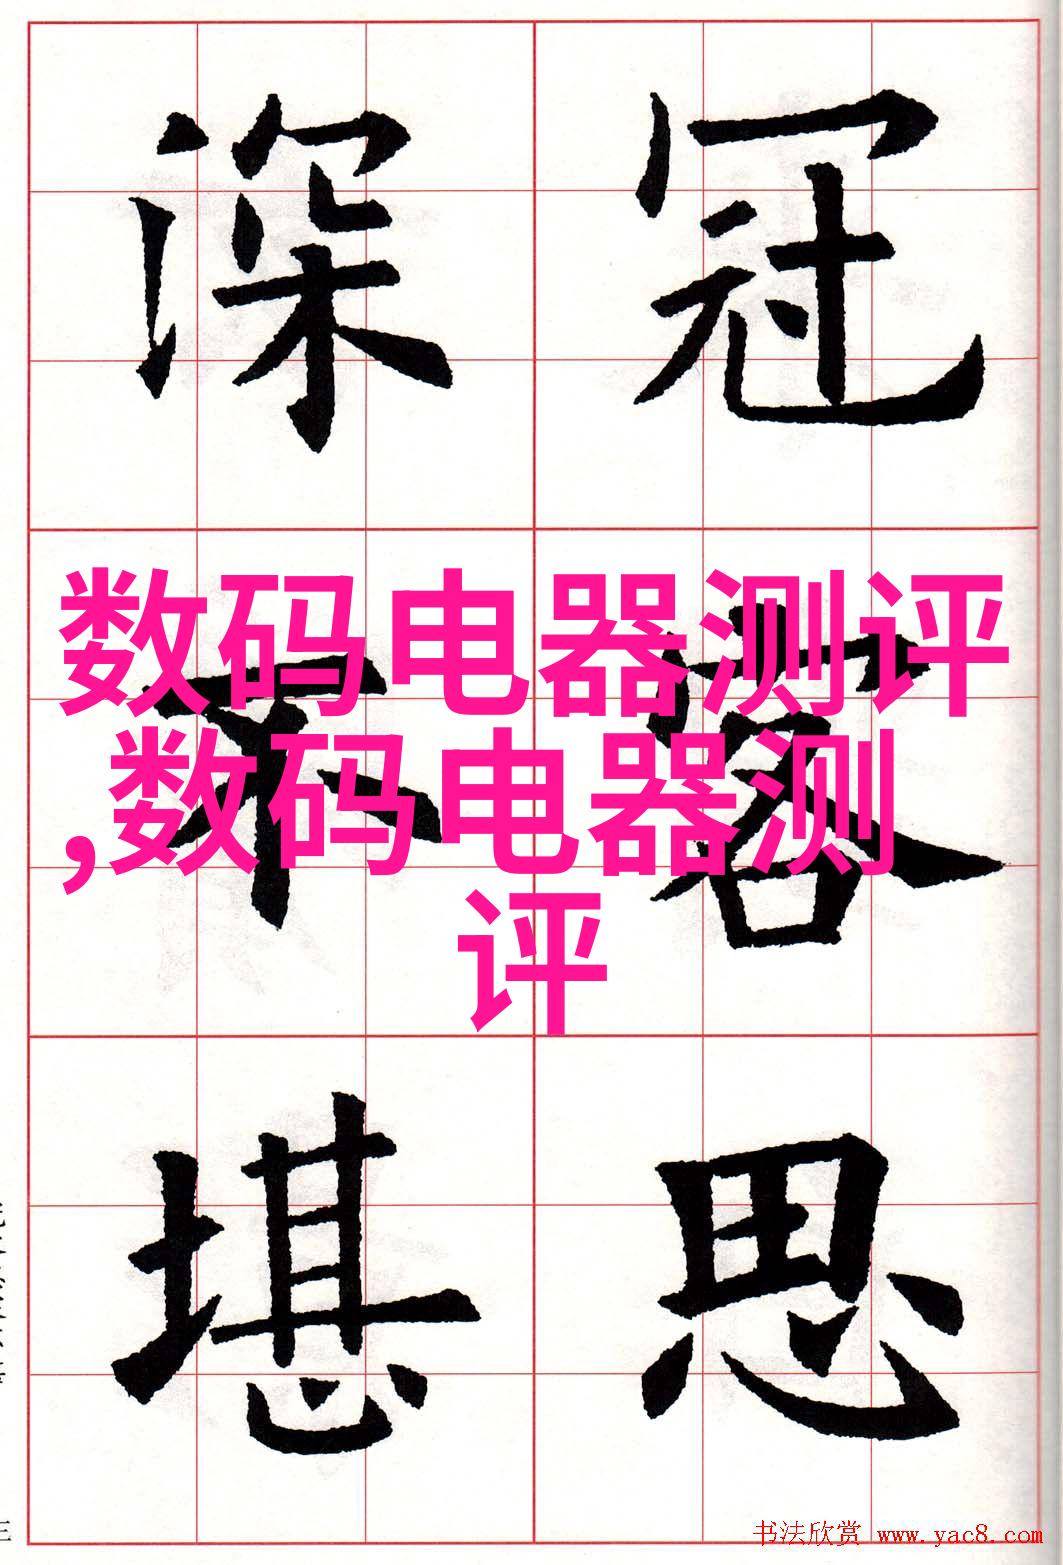 深 冠
数码电器测评
,数码电器测
评
不 容
堪 思
书法欣赏 www.yac8.com